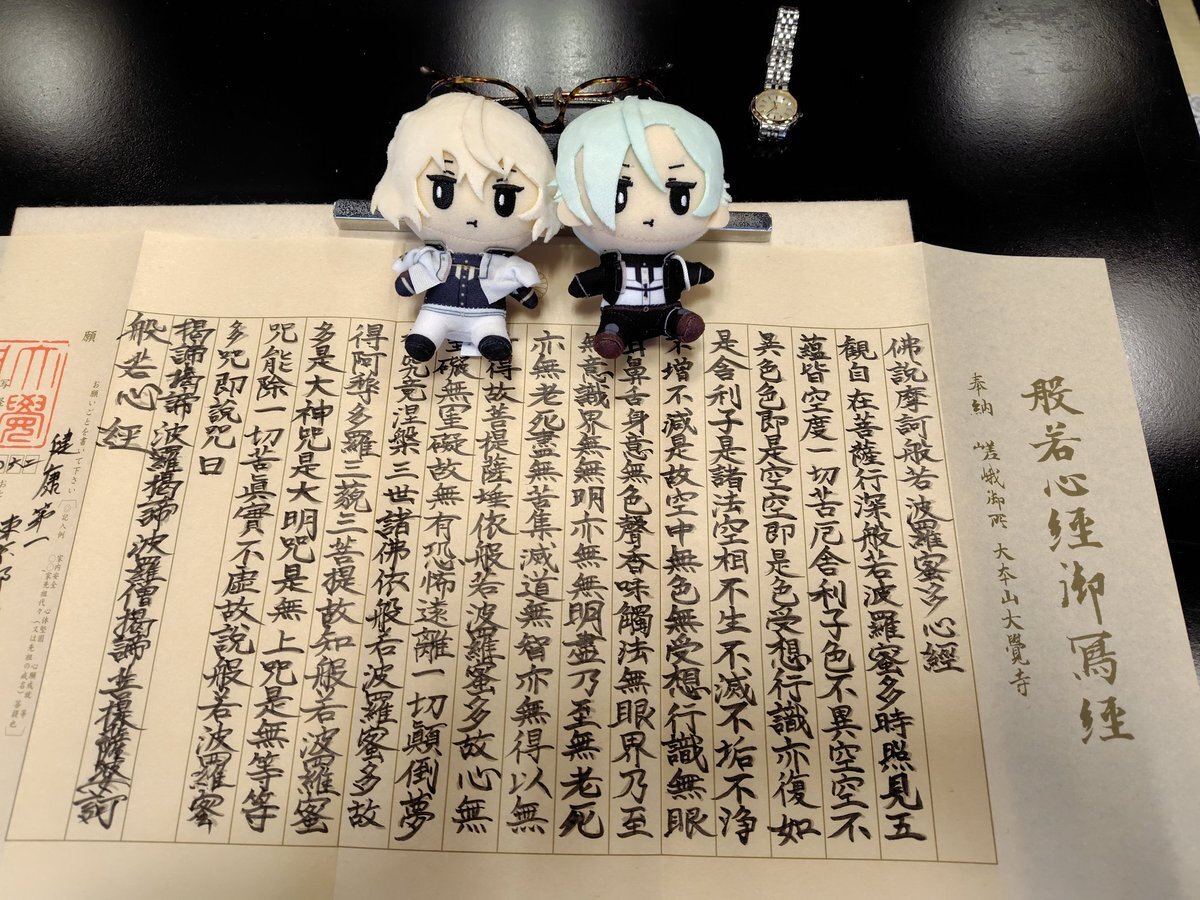 般若心經御寫經
奉納 嵯峨御所 大本山大覺寺
佛説摩訶般若波羅蜜多心經
觀自在菩薩行深般若波羅蜜多時照見五
蘊皆空度一切苦厄舍利子色不異空空不
異色色即是空空即是色受想行識亦復如
是舍利子是諸法空相不生不滅不垢不淨
不增不減是故空中無色無受想行識無眼
耳鼻舌身意無色聲香味觸法無眼界乃至
無意識界無無明亦無無明盡乃至無老死
亦無老死盡無苦集滅道無智亦無得以無
得故菩提薩埵依般若波羅蜜多故心無
礙無罣礙故無有恐怖遠離一切顛倒夢
究竟涅槃三世諸佛依般若波羅蜜多故
得阿耨多羅三藐三菩提故知般若波羅蜜
多是大神呪是大明呪是無上呪是無等等
呪能除一切苦眞實不虛故説般若波羅蜜
多呪即説呪曰
揭諦揭諦 波羅揭諦 波羅僧揭諦 菩提薩婆訶
般若心經
願 お願いごとを書いて下さい
記入例 家内安全 心体堅固 心願成就 等
○○家先祖代々(又は先祖の戒名)菩提也
健康第一